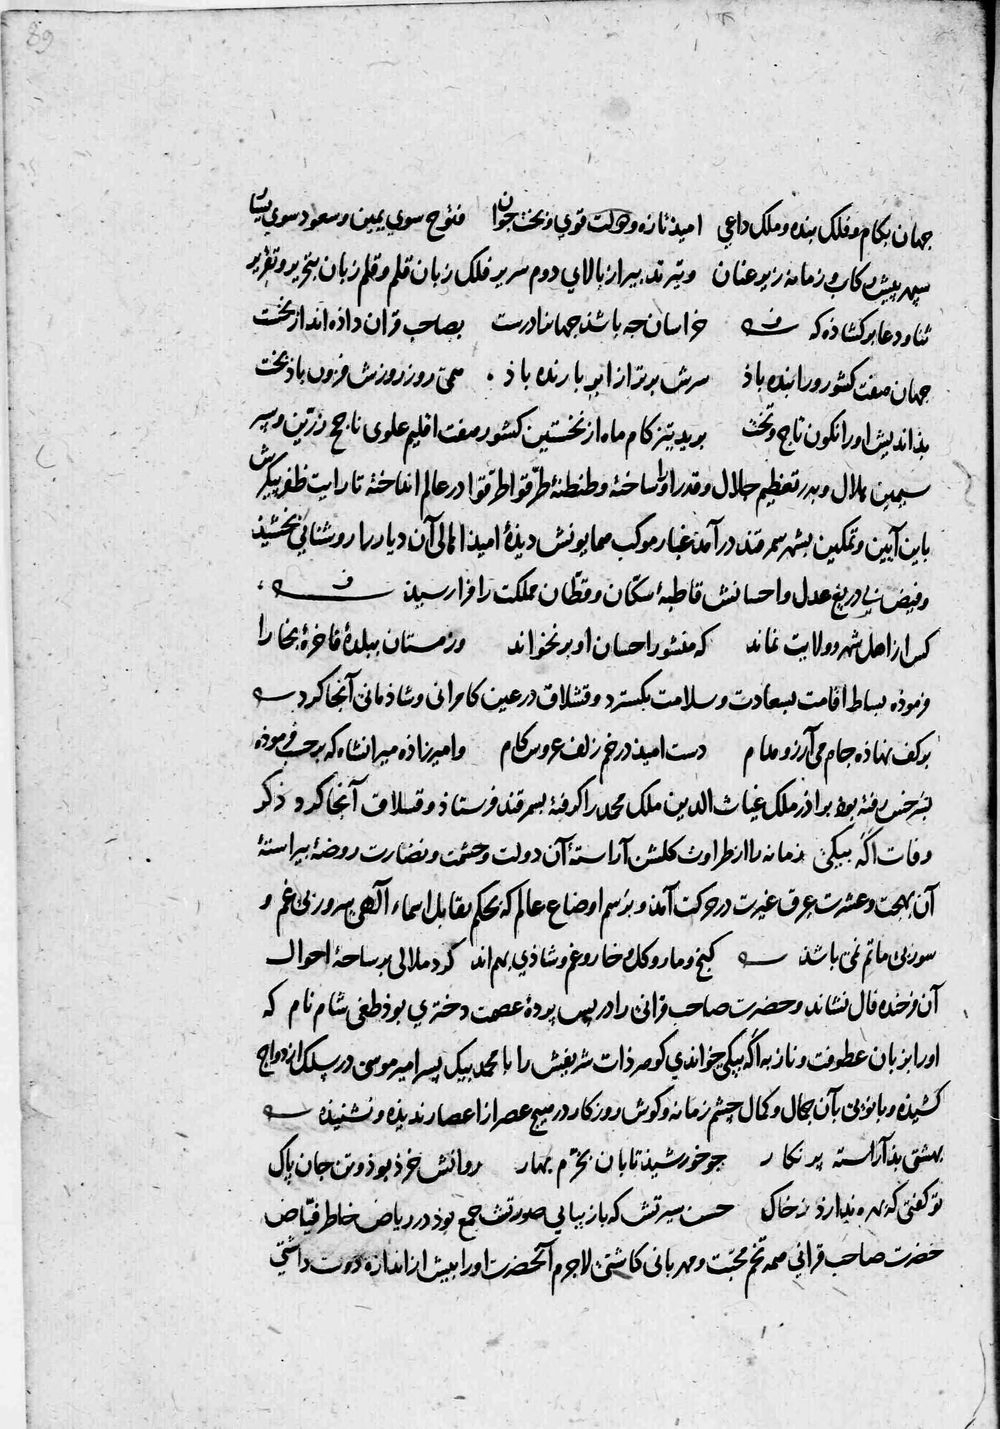 89
جهان بکام و فلک بنده و ملک داعی امیذ تازه و دولت قوی و بخت جوان فتوح سوی یمین و سعود سوی یسار
سپهر پیش رکاب و زمانه زیر عنان و تیر تدبیر از بالای دوم سریر فلک زبان قلم و قلم زبان بتحریر و تقریر
ثنا و دعا بر کشاذه که خراسان چه باشذ جهان نادرست بصاحب قران داذه اند از نخست
جهان هفت کشور ورا بنده باذ سرش برتر از ابر بارنده باذ همی روز روزش فزون باذ بخت
بذاندیش او را نگون تاج و تخت برید تیز کام ماه از نخستین کشور هفت اقلیم علوی تاج زرین و سپر
سیمین هلال و بدر تعظیم جلال و قدر او را ساخته و طنطنهٔ طرّقوا طرقوا در عالم انداخته تا رایت ظفر پیکرش
باین آیین و تمکین بشهر سمرقند در آمذ غبار موکب همایونش دیذهٔ امیذ اهالی آن دیار را روشنائی بخشیذ
و فیض بی دریغ عدل و احسانش قاطبهٔ سکّان و قطّان مملکت را فرا رسیذ
کس از اهل شهر و ولایت نماند که منشور احسان او بر نخواند و زمستان ببلدهٔ فاخرهٔ بخارا
فرموذه بساط اقامت بسعادت و سلامت بگسترد و قشلاق در عین کامرانی و شاذمانی آنجا کرد
بر کف نهاذه جام می آرزو مدام دست امیذ در خم زلف عروس کام و امیرزاده میرانشاه که بر حسب فرموذه
بسرخس رفته بوذ براذر ملک غیاث الدین ملک محمد را گرفته بسمرقند فرستاذ و قشلاق آنجا کرد ذکر
وفات اکه بیکی زمانه را از طراوت گلشن آراستهٔ آن دولت و حشمت و نضارت روضهٔ پیراستهٔ
آن بهجت و عشرت عرق غیرت در حرکت آمذ و برسم اوضاع عالم که بحکم تقابل اسماء الهی سروری بی غم و
سوری بی ماتم نمی باشذ گنج و مار و گل و خار و غم و شاذی بهم اند گرد ملالی بر ساحهٔ احوال
آن فرخنده فال نشاند و حضرت صاحب قرانی را در پس پردهٔ عصمت دختری بوذ طغی شاه نام که
او را بزبان عطوفت و ناز به اکه بیکی خواندی گوهر ذات شریفش را با محمد بیک پسر امیر موسی در سلک ازدواج
کشیذه و بانوئی بآن جمال و کمال چشم زمانه و گوش روزگار در هیچ عصر از اعصار ندیذه و نشنیذه
بهشتی بذ آراسته پر نگار چو خورشیذ تابان بخرّم بهار روانش خرذ بوذ و تن جان پاک
تو گفتی که بهره نذارذ ز خاک حسن سیرتش که با زیبایی صورتش جمع بوذ در ریاض خاطر فیّاض
حضرت صاحب قرانی همه تخم محبّت و مهربانی کاشتی لاجرم آنحضرت او را بیش از اندازه دوست داشتی